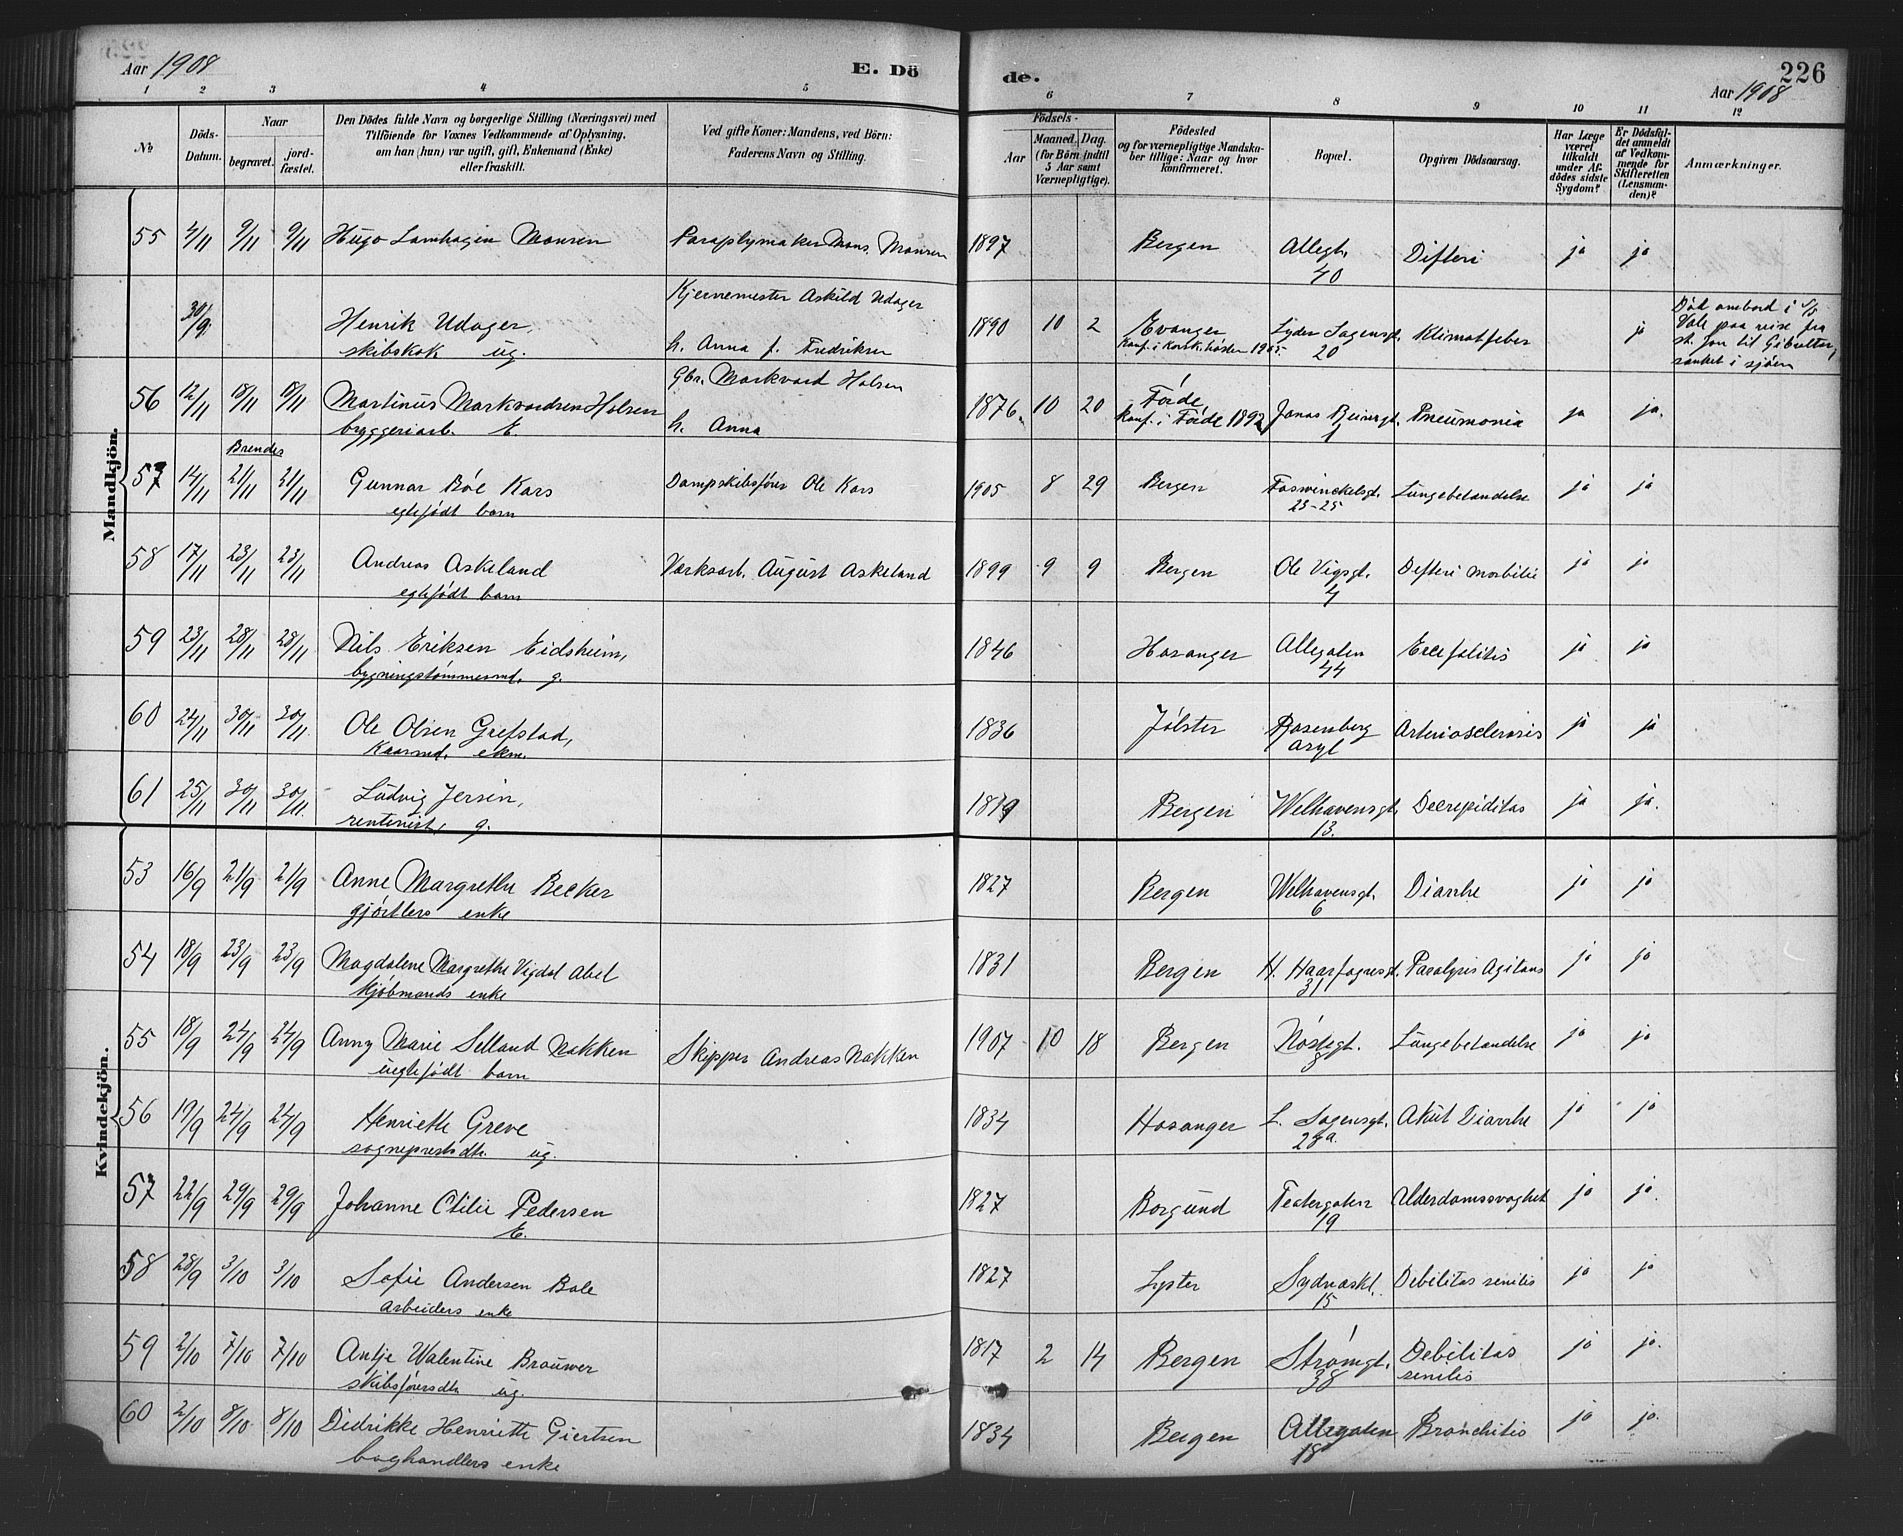 Aar 1908 E. Dö
de. 226
Aar 1908
1 2 3 4 5
6 7 8 9 10 11 12
No
Döds-Datum.
Naar
begravet.
jord-fæstet.
Den Dödes fulde Navn og borgerlige Stilling (Næringsvei) med
Tilföiende for Voxnes Vedkommende af Oplysning,
om han (hun) var ugift, gift, Enkemand (Enke)
eller fraskilt.
Ved gifte Koner: Mandens, ved Börn:
Faderens Navn og Stilling.
Födsels-
Aar
Maaned. Dag.
(for Börn indtil
5 Aar samt
Værnepligtige).
Födested
og for værnepligtige Mandska-
ber tillige: Naar og hvor
konfirmeret.
Bopæl.
Opgiven Dödsaarsag.
Har Læge
været
tilkaldt
under Af-
dödes sidste
Sygdom?
Er Dödsfal-
det anmeldt
af Vedkom-
mende for
Skifteretten
(Lensman-
den)?
Anmærkninger.
Mandkjön.
55 4/11 9/11 9/11 Hugo Lamhagen Monsen Paraplymaker Mons. Monsen 1897 Bergen Allegt. 40 Difteri ja ja
30/9 Henrik Udager, skibskok ug. Kjernemester Askild Udager h. Anna f. Fredriksen 1890 10 2 Evanger Konf. i Korsk. høsten 1905 Lyder Sagensgt. 20 Klimatfeber ja Död ombord i s/s Vale paa reise fra st. Jon til Gibralter, sænket i sjöen
56 12/11 18/11 18/11 Martinus Markvardsen Holsen bryggeriarb. E. Gbr. Markvard Holsen h. Anna 1876 10 20 Førde Konf. i Førde 1892 Jonas Reinsgt. 1 Pneumonia ja ja.
Brendes
57 14/11 21/11 21/11 Gunnar Bøe Kars egtefødt barn Dampskibsfører Ole Kars 1905 8 29 Bergen Foswinckelsgt. 23-25 Lungebetændelse ja ja
58 17/11 23/11 23/11 Andreas Askeland egtefødt barn Værksarb. August Askeland 1899 9 9 Bergen Ole Vigsgt. 4 Difteri morbilie ja ja
59 23/11 28/11 28/11 Nils Eriksen Eidsheim, bygningstømmermd. g. 1846 Hosanger Allegaten 44 Encefalitis ja ja
60 24/11 30/11 30/11 Ole Olsen Grefstad, Kaarmd. ekm. 1836 Jølster Rosenberg asyl Arteriosclerosis ja ja
61 25/11 30/11 30/11. Ludvig Jersin, rentenist, g. 1819 Bergen Welhavensgt. 13. Decrepiditas ja ja.
Kvindekjön.
53 16/9 21/9 21/9 Anne Margrethe Becker gjørtlers enke 1827 Bergen Welhavensgt. 6 Diarrhe ja ja
54 18/9 23/9 23/9 Magdalene Margrethe Vigdal Abel kjøbmands enke 1831 Bergen H. Haarfagresgt. 31 Paralysis Agitans ja ja
55 18/9 24/9 24/9 Anny Marie Selland Nakken uegtefødt barn Skipper Andreas Nakken 1907 10 18 Bergen Nøstegt. 8 Lungebetændelse ja ja
56 19/9 24/9 24/9 Henriette Greve sogneprestsdtr. ug. 1834 Hosanger L. Sagensgt. 28a. Akut Diarrhe ja ja
57 22/9 29/9 29/9 Johanne Otilie Pedersen E. 1827 Borgund Teatergaten 19 Alderdomssvaghet ja ja.
58 28/9 3/10 3/10 Sofie Andersen Bale arbeiders enke 1827 Lyster Sydnæskl. 15 Debilitas senilis ja ja
59 2/10 7/10 7/10 Antje Walentine Brouwer skibsførersdtr. ug. 1817 2 14 Bergen Strømgt. 38 Debilitas senilis ja ja.
60 2/10 8/10 8/10 Didrikke Henriette Giertsen boghandlers enke 1834 Bergen Allegaten 18 Bronchitis ja ja.